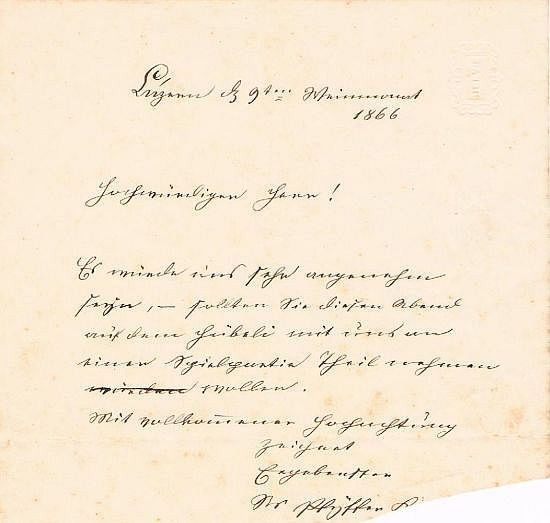 Luzern d 9ten Weinmonat
1866
Hochwürdiger Herr!
Es würde uns sehr angenehm
seyn, — sollten Sie diesen Abend
auf dem Hübeli mit uns an
einer Spielpartie Theil nehmen
würden wollen.
Mit vollkommener Hochachtung
zeichnet
Ergebenster
Pfyffer